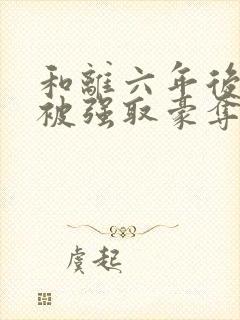 和離六年後
被强取豪奪
虞起